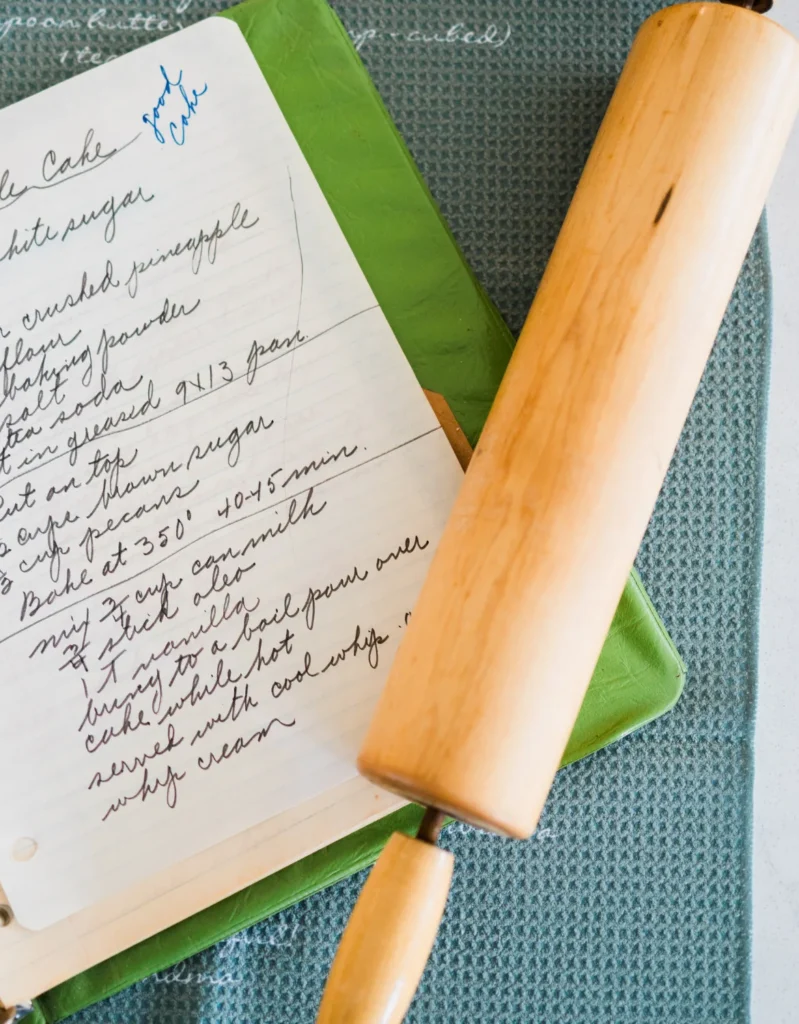 poon butter
1 tea
p - cubed)
good
cake
le Cake
hite sugar
crushed pineapple
flour
baking powder
salt
tea soda
t in greased 9x13 pan.
Put on top
cups brown sugar
cup pecans
Bake at 350° 40-45 min.
mix 3/4 cup can milk
3/4 stick oleo
1 T vanilla
bring to a boil pour over
cake while hot
served with cool whip.
whip cream